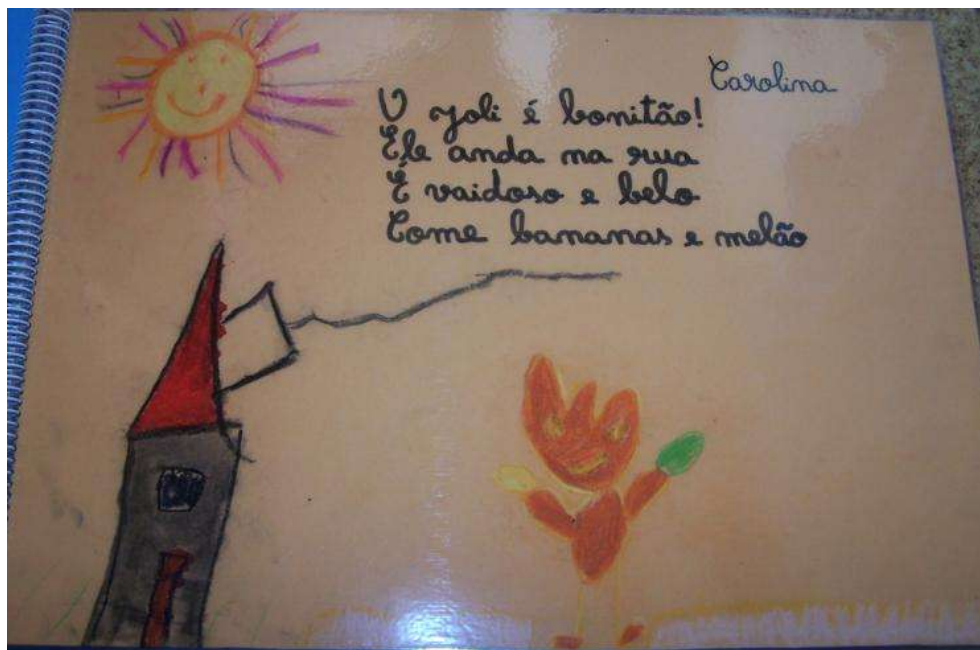 Carolina
O Joli é bonitão!
Ele anda na rua
É vaidoso e belo
Come bananas e melão